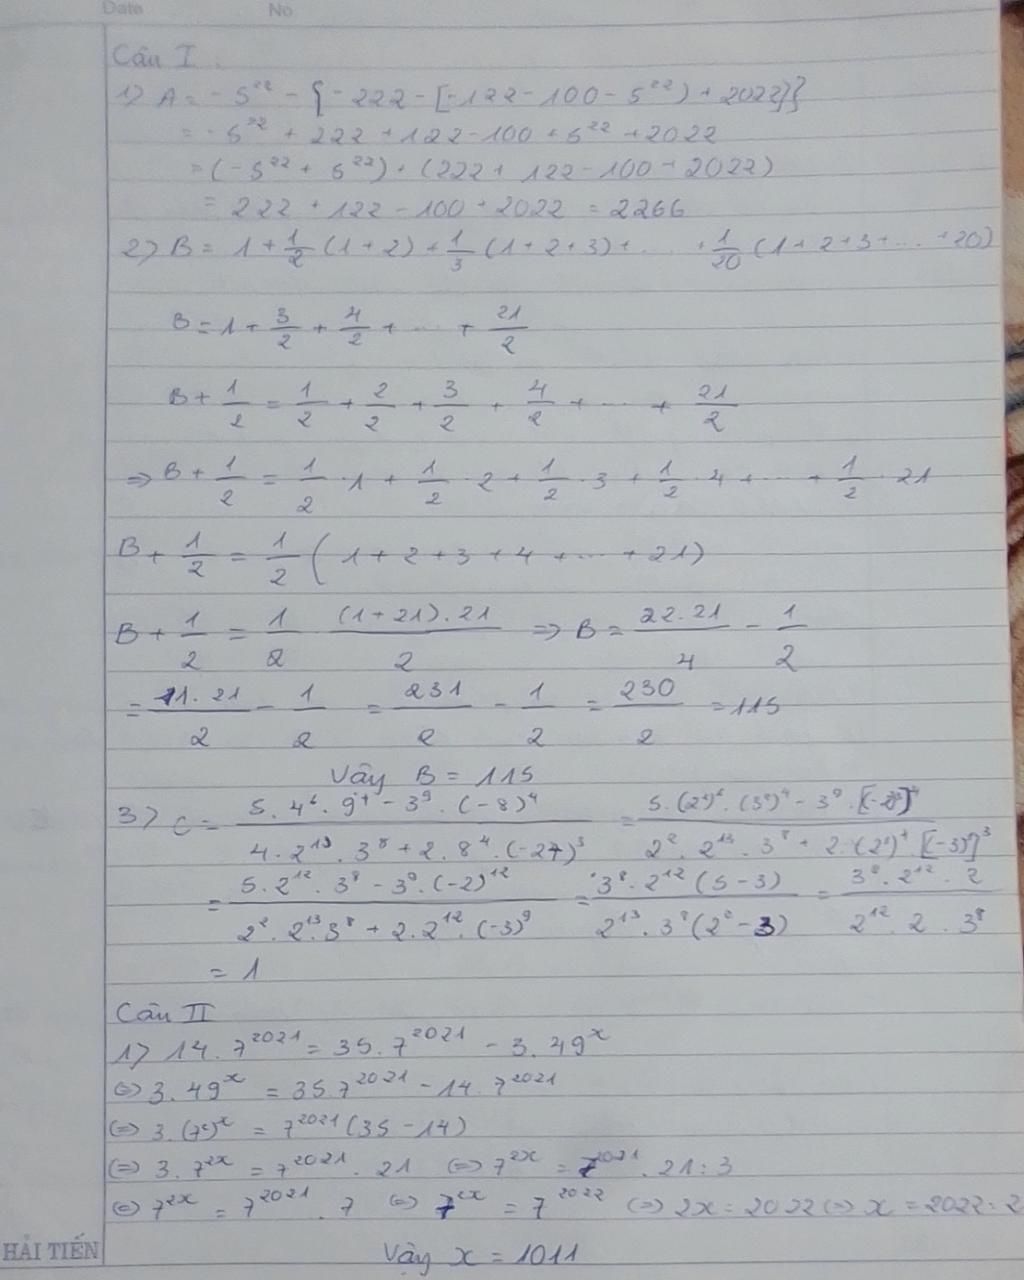 Date No
Câu I
1) A = -5²² - {-222 - [-122 - 100 - 5²²) + 2022]}
= -5²² + 222 + 122 - 100 + 5²² + 2022
= (-5²² + 5²²) + (222 + 122 - 100 + 2022)
= 222 + 122 - 100 + 2022 = 2266
2) B = 1 + 1/2 (1 + 2) + 1/3 (1 + 2 + 3) + ... + 1/20 (1 + 2 + 3 + ... + 20)
B = 1 + 3/2 + 4/2 + ... + 21/2
B + 1/2 = 1/2 + 2/2 + 3/2 + 4/2 + ... + 21/2
=> B + 1/2 = 1/2 . 1 + 1/2 . 2 + 1/2 . 3 + 1/2 . 4 + ... + 1/2 . 21
B + 1/2 = 1/2 ( 1 + 2 + 3 + 4 + ... + 21)
B + 1/2 = 1/2 (1 + 21).21/2 => B = 22.21/4 - 1/2
= 11.21/2 - 1/2 = 231/2 - 1/2 = 230/2 = 115
Vậy B = 115
3) C = (5.4⁶.9⁴ - 3⁹.(-8)⁴)/(4.2¹³.3⁸ + 2.8⁴.(-27)³) = (5.(2²)⁶.(3²)⁴ - 3⁹.[(-2)³]⁴)/(2².2¹³.3⁸ + 2.(2³)⁴.[(-3)³]³)
= (5.2¹².3⁸ - 3⁹.(-2)¹²)/(2².2¹³.3⁸ + 2.2¹².(-3)⁹) = (3⁸.2¹²(5-3))/(2¹³.3⁸(2²-3)) = (3⁸.2¹².2)/(2¹².2.3⁸)
= 1
Câu II
1) 14.7²⁰²¹ = 35.7²⁰²¹ - 3.49ˣ
<=> 3.49ˣ = 35.7²⁰²¹ - 14.7²⁰²¹
<=> 3.(7²)ˣ = 7²⁰²¹(35-14)
<=> 3.7²ˣ = 7²⁰²¹.21 <=> 7²ˣ = 7²⁰²¹.21:3
<=> 7²ˣ = 7²⁰²¹.7 <=> 7²ˣ = 7²⁰²² <=> 2x = 2022 <=> x = 2022:2
Vậy x = 1011
HẢI TIẾN